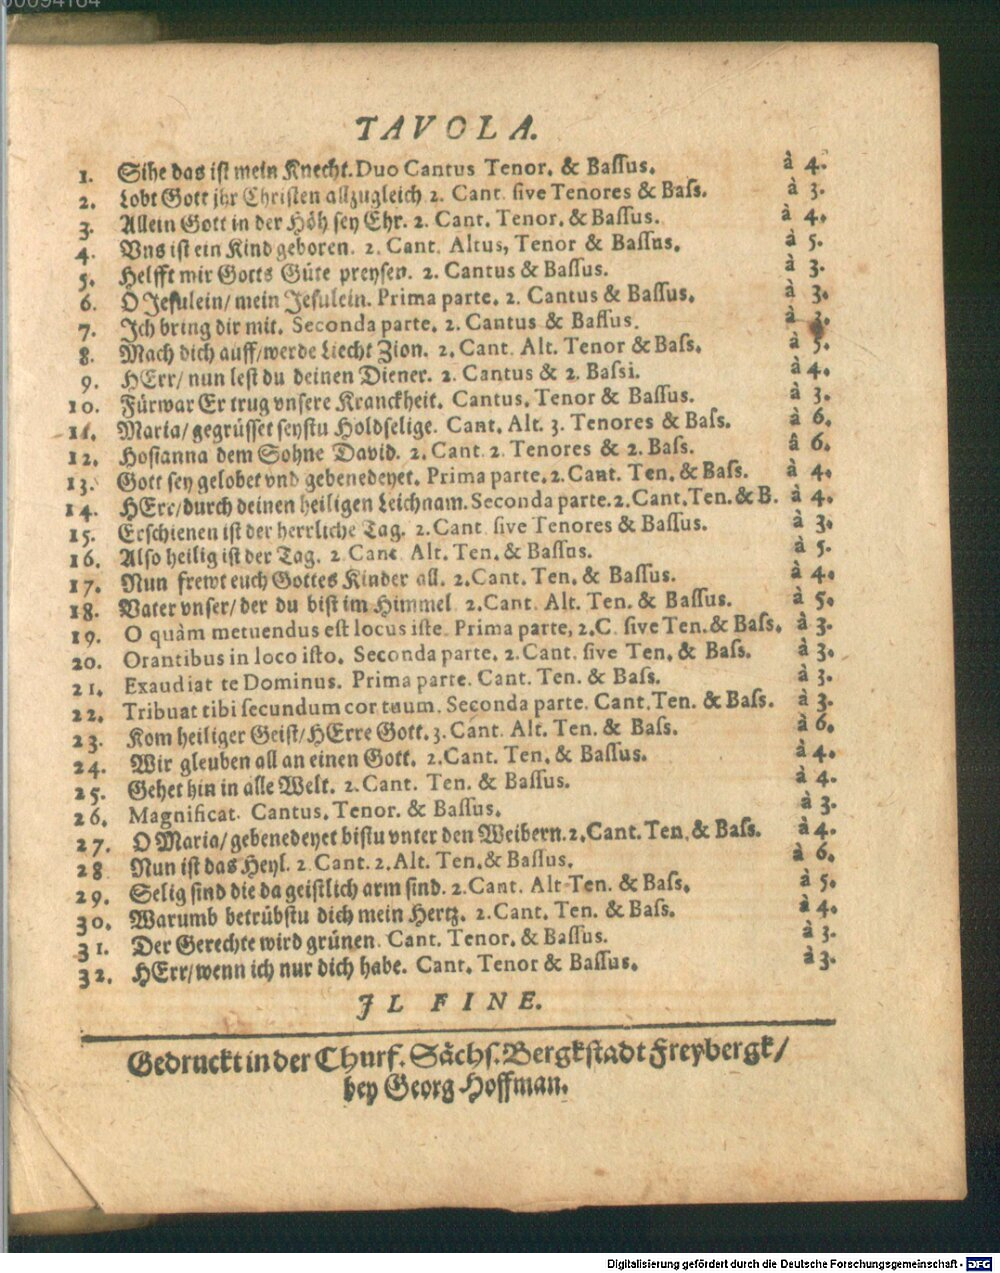 00094164
TAVOLA.
1. Sihe das ist mein Knecht. Duo Cantus Tenor. & Bassus. à 4.
2. Lobt Gott jhr Christen allzugleich 2. Cant. sive Tenores & Bass. à 3.
3. Allein Gott in der Höh sey Ehr. 2. Cant. Tenor. & Bassus. à 4.
4. Vns ist ein Kind geboren. 2. Cant. Altus, Tenor & Bassus. à 5.
5. Helfft mir Gotts Güte preysen. 2. Cantus & Bassus. à 3.
6. O Jesulein/ mein Jesulein. Prima parte. 2. Cantus & Bassus. à 3.
7. Ich bring dir mit. Seconda parte. 2. Cantus & Bassus. à 3.
8. Mach dich auff/werde Liecht Zion. 2. Cant. Alt. Tenor & Bass. à 5.
9. HErr/ nun lest du deinen Diener. 2. Cantus & 2. Bassi. à 4.
10. Fürwar Er trug vnsere Kranckheit. Cantus. Tenor & Bassus. à 3.
11. Maria/ gegrüsset seystu Holdselige. Cant. Alt. 3. Tenores & Bass. à 6.
12. Hosianna dem Sohne David. 2. Cant. 2. Tenores & 2. Bass. â 6.
13. Gott sey gelobet vnd gebenedeyet. Prima parte. 2. Cant. Ten. & Bass. à 4.
14. HErr/durch deinen heiligen Leichnam. Seconda parte. 2. Cant. Ten. & B. à 4.
15. Erschienen ist der herrliche Tag. 2. Cant sive Tenores & Bassus. à 3.
16. Also heilig ist der Tag. 2 Cant. Alt. Ten. & Bassus. à 5.
17. Nun frewt euch Gottes Kinder all. 2. Cant. Ten. & Bassus. à 4.
18. Vater vnser/ der du bist im Himmel 2. Cant. Alt. Ten. & Bassus. à 5.
19. O quàm metuendus est locus iste. Prima parte, 2. C. sive Ten. & Bass. à 3.
20. Orantibus in loco isto. Seconda parte. 2. Cant. sive Ten. & Bass. à 3.
21. Exaudiat te Dominus. Prima parte. Cant. Ten. & Bass. à 3.
22. Tribuat tibi secundum cor tuum. Seconda parte. Cant. Ten. & Bass. à 3.
23. Kom heiliger Geist/HErre Gott. 3. Cant. Alt. Ten. & Bass. à 6.
24. Wir gleuben all an einen Gott. 2. Cant. Ten. & Bassus. à 4.
25. Gehet hin in alle Welt. 2. Cant. Ten. & Bassus. à 4.
26. Magnificat. Cantus. Tenor. & Bassus. à 3.
27. O Maria/ gebenedeyet bistu vnter den Weibern. 2. Cant. Ten. & Bass. à 4.
28 Nun ist das Heyl. 2 Cant. 2. Alt. Ten. & Bassus. à 6.
29. Selig sind die da geistlich arm sind. 2. Cant. Alt Ten. & Bass. à 5.
30. Warumb betrübstu dich mein Hertz. 2. Cant. Ten. & Bass. à 4.
31. Der Gerechte wird grünen. Cant. Tenor. & Bassus. à 3.
32. HErr/wenn ich nur dich habe. Cant. Tenor & Bassus. à 3.
JL FINE.
Gedruckt in der Churf. Sächs. Bergkstadt Freybergk/
bey Georg Hoffman.
Digitalisierung gefördert durch die Deutsche Forschungsgemeinschaft - DFG